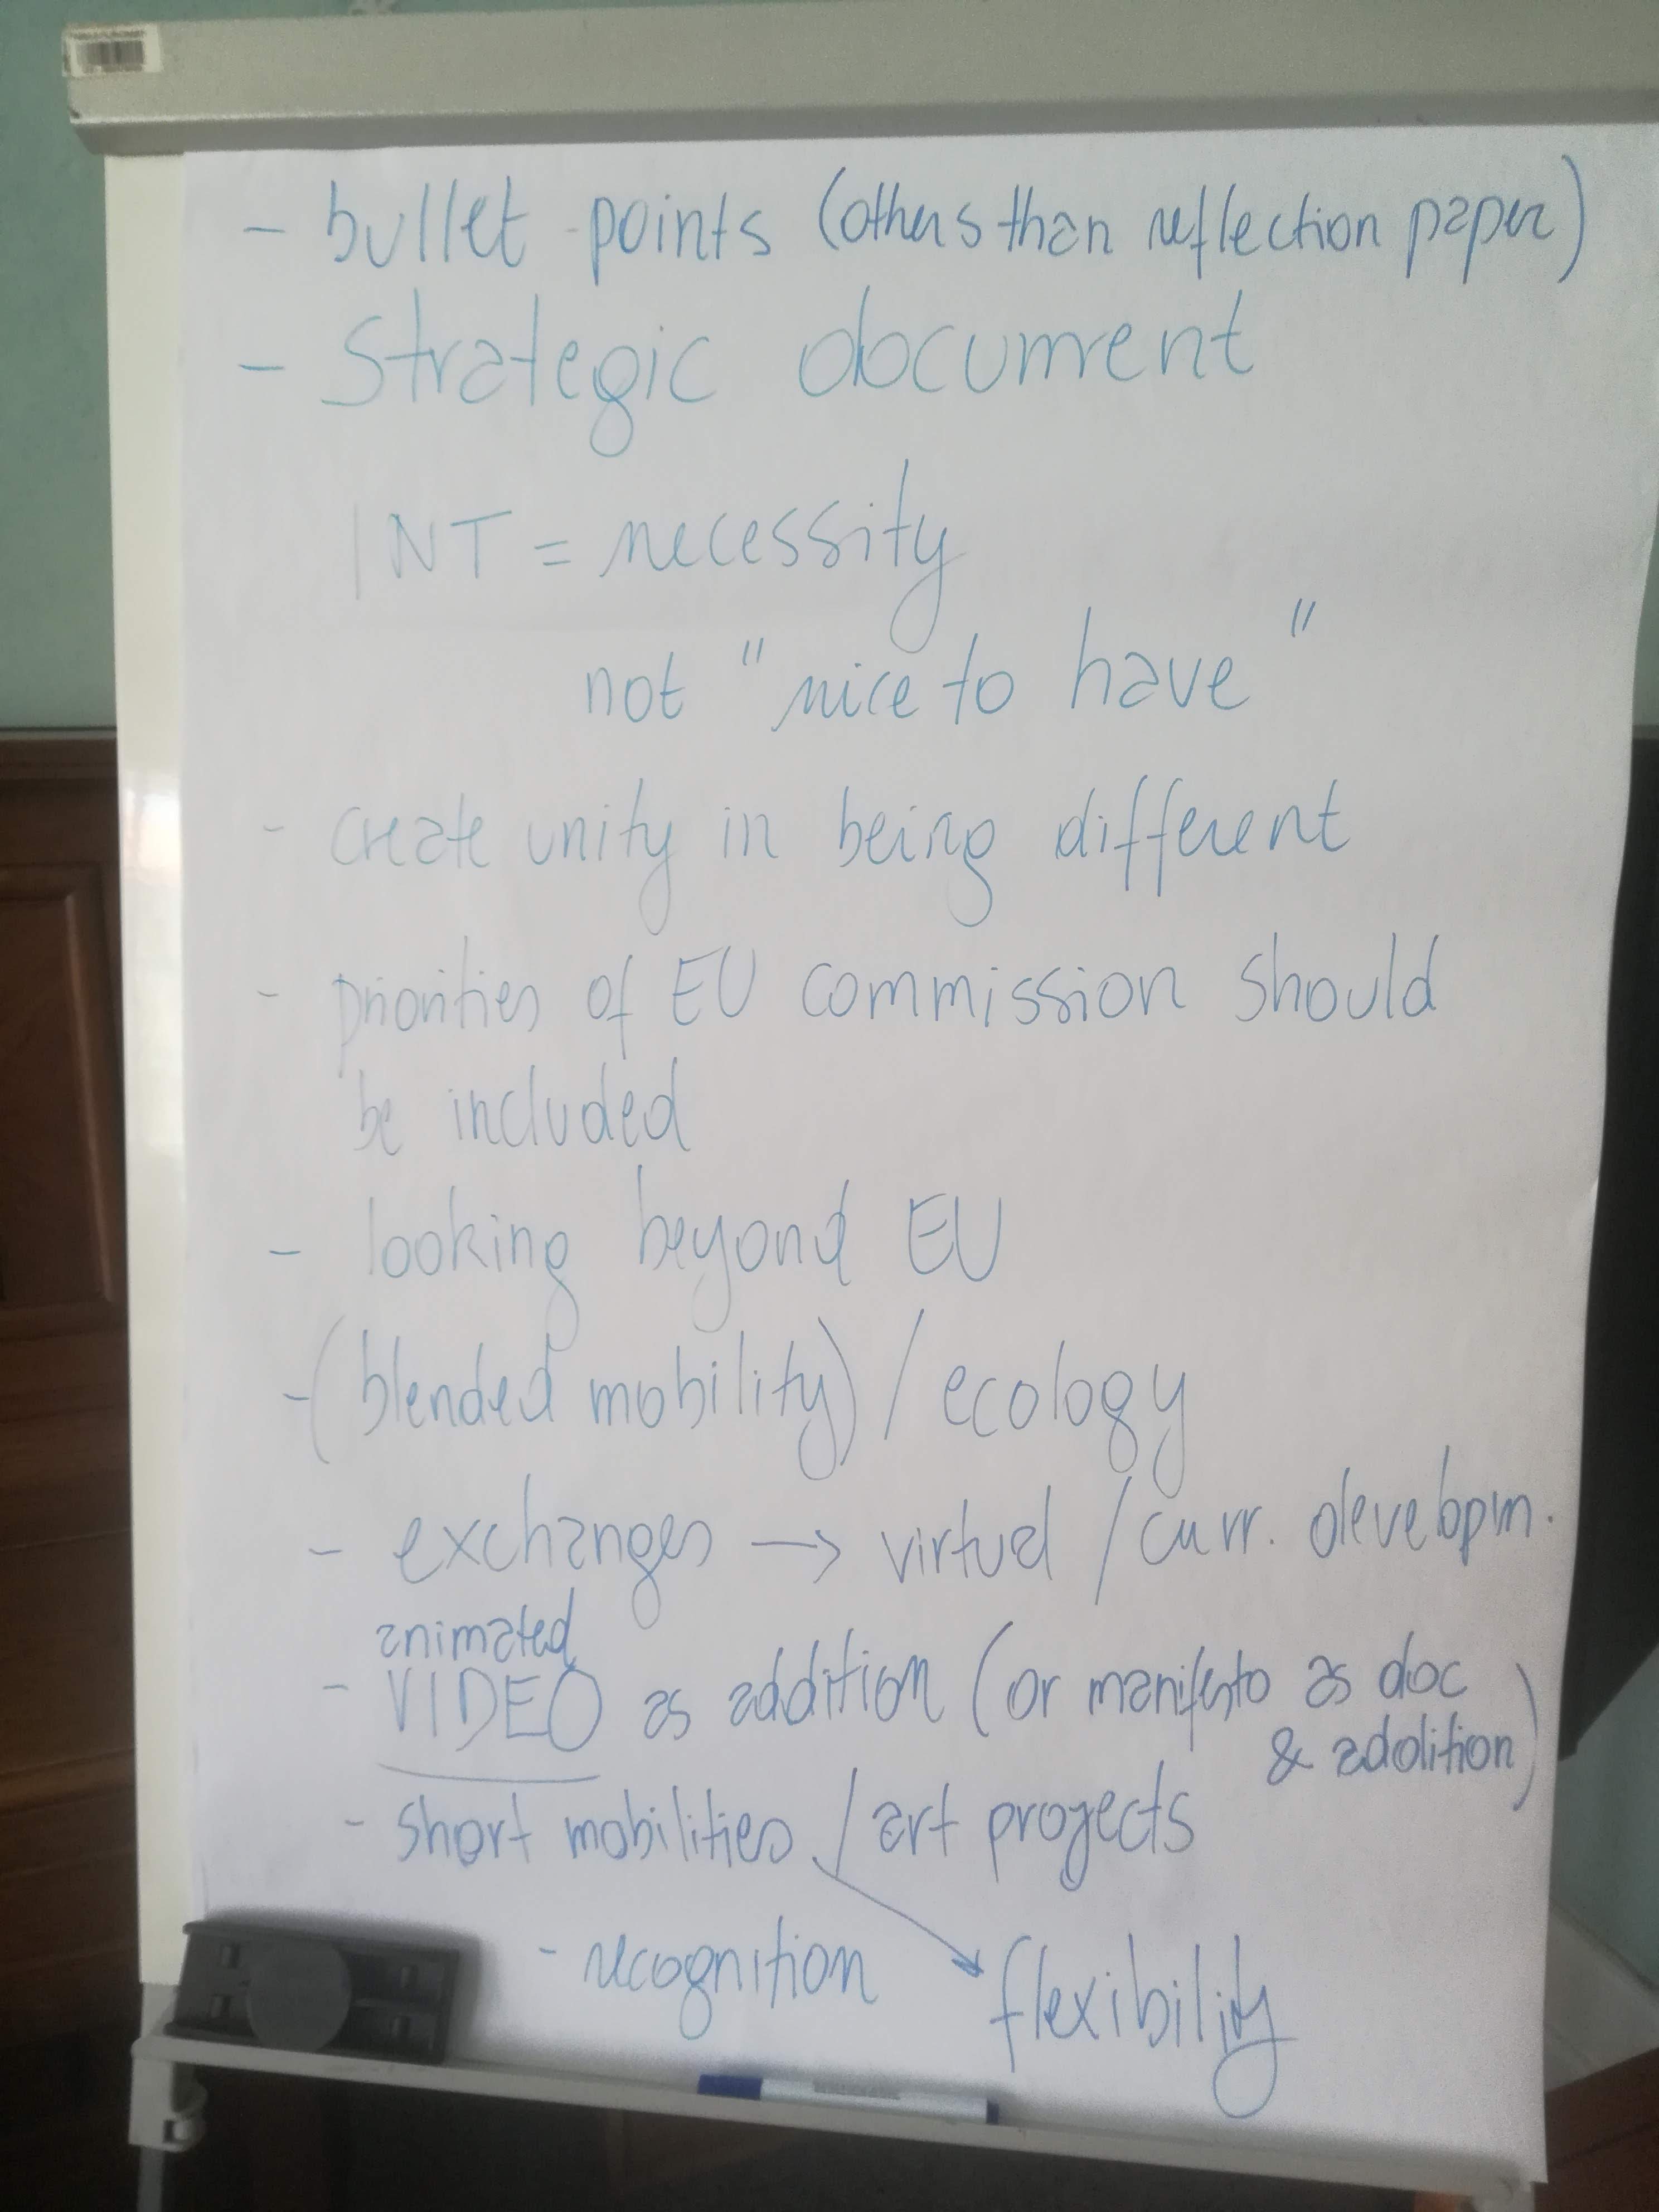 - bullet points (others than reflection paper)
- Strategic document
INT = necessity
not "nice to have"
- create unity in being different
- priorities of EU commission should
be included
- looking beyond EU
- (blended mobility) / ecology
- exchanges → virtual / curr. developm.
animated
- VIDEO as addition (or manifesto as doc
& addition)
- short mobilities / art projects
- recognition flexibility